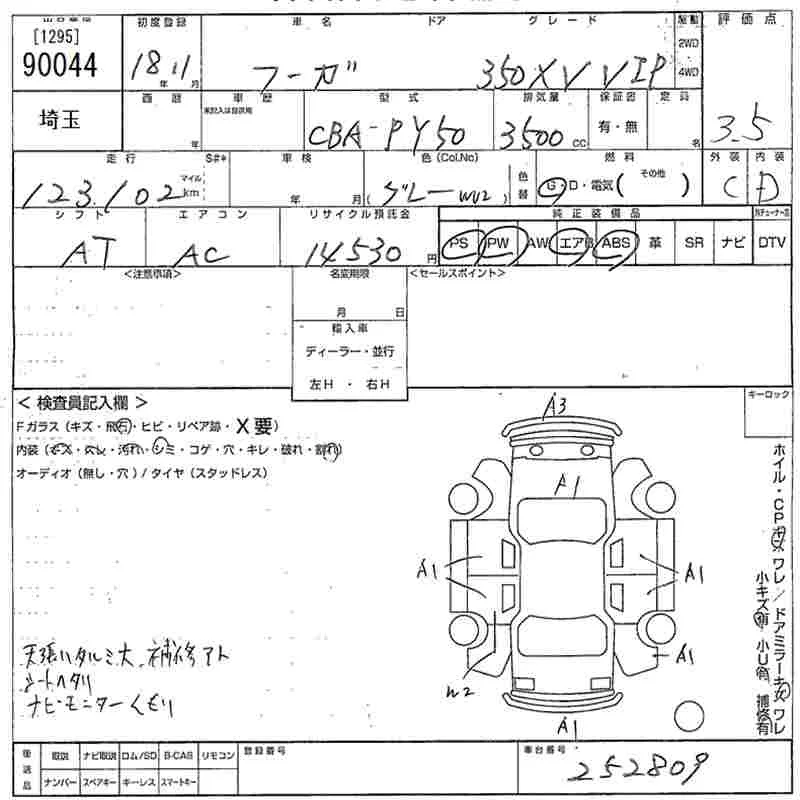 [1295] 初度登録 車名 ドア グレード 駆動 評価点
90044 18年11月 フーガ 350XV VIP 2WD 4WD
埼玉 西暦 年 車歴 未記入は自家用 型式 排気量 保証書 定員
CBA-PY50 3500cc 有・無 名 3.5
走行 S#* 車検 色(Col.No) 色替 燃料 外装 内装
123,102 マイル km 年 月 (グレーW2) G・D・電気( その他 ) C D
シフト エアコン リサイクル預託金 純正装備品
AT AC 14530円 PS PW AW エアB ABS 革 SR ナビ DTV
<注意事項> 名変期限 <セールスポイント>
月 日
輸入車
ディーラー・並行
左H ・ 右H
< 検査員記入欄 > キーロック
Fガラス(キズ・飛石・ヒビ・リペア跡・X要)
内装(キズ・スレ・汚れ・シミ・コゲ・穴・キレ・破れ・割れ)
オーディオ(無し・穴)/タイヤ(スタッドレス)
A3
A1
A1 A1
A1
W2
A1
ホイル・CPキズ ワレ/ドアミラーキズ ワレ
小キズ有 小U有 補修有
天張りタルミ大、補修アト
シートヘタリ
ナビ・モニターくもり
後送品 取説 ナビ取説 ロム/SD B-CAS リモコン 登録番号 車台番号
ナンバー スペアキー キーレス スマートキー 252809